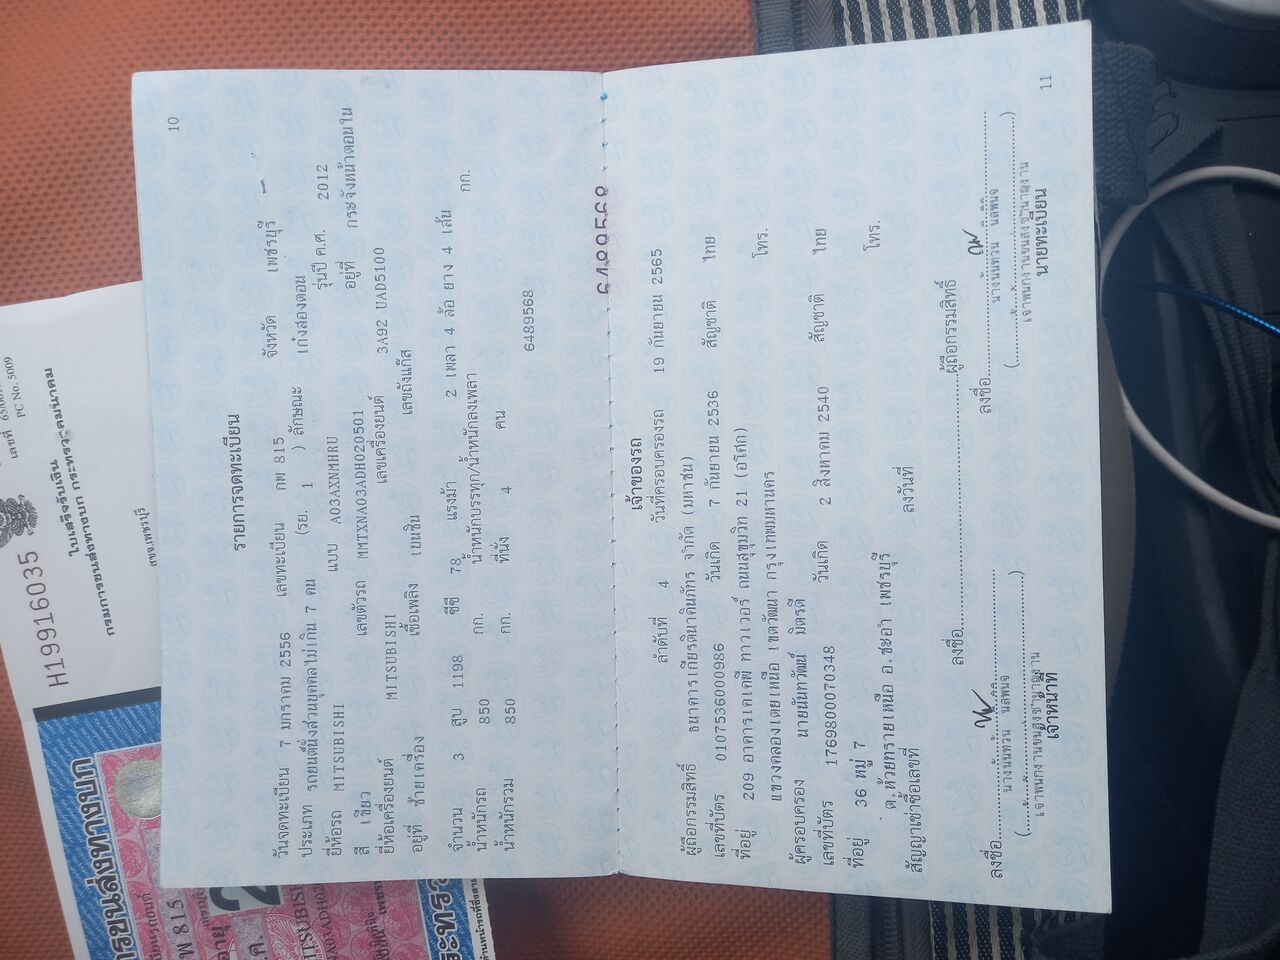 10
รายการจดทะเบียน
วันจดทะเบียน 7 มกราคม 2556 เลขทะเบียน กพ 815 จังหวัด เพชรบุรี
ประเภท รถยนต์นั่งส่วนบุคคลไม่เกิน 7 คน (รย. 1 ) ลักษณะ เก๋งสองตอน
ยี่ห้อรถ MITSUBISHI แบบ A03AXNMHRU รุ่นปี ค.ศ. 2012
สี เขียว เลขตัวรถ MMTXNA03ADH020501 อยู่ที่ กระจังหน้าตอนใน
ยี่ห้อเครื่องยนต์ MITSUBISHI เลขเครื่องยนต์ 3A92 UAD5100
อยู่ที่ ซ้ายเครื่อง เชื้อเพลิง เบนซิน เลขถังแก๊ส
จำนวน 3 สูบ 1198 ซีซี 78 แรงม้า 2 เพลา 4 ล้อ ยาง 4 เส้น
น้ำหนักรถ 850 กก. น้ำหนักบรรทุก/น้ำหนักลงเพลา กก.
น้ำหนักรวม 850 กก. ที่นั่ง 4 คน
6489568
เจ้าของรถ
ลำดับที่ 4 วันที่ครอบครองรถ 19 กันยายน 2565
ผู้ถือกรรมสิทธิ์ ธนาคารเกียรตินาคินภัทร จำกัด (มหาชน)
เลขที่บัตร 0107536000986 วันเกิด 7 กันยายน 2536 สัญชาติ ไทย
ที่อยู่ 209 อาคารเคเคพี ทาวเวอร์ ถนนสุขุมวิท 21 (อโศก)
แขวงคลองเตยเหนือ เขตวัฒนา กรุงเทพมหานคร โทร.
ผู้ครอบครอง นายนันทวัฒน์ มิตรดี
เลขที่บัตร 1769800070348 วันเกิด 2 สิงหาคม 2540 สัญชาติ ไทย
ที่อยู่ 36 หมู่ 7
ต.ห้วยทรายเหนือ อ.ชะอำ เพชรบุรี โทร.
สัญญาเช่าซื้อเลขที่ ลงวันที่
ลงชื่อ ผู้ถือกรรมสิทธิ์
ลงชื่อ ลงชื่อ
เจ้าพนักงานขนส่งชำนาญงาน เจ้าพนักงานขนส่งชำนาญงาน
เจ้าหน้าที่ นายทะเบียน
11
PC No. 5009
ใบเสร็จรับเงิน
กรมการขนส่งทางบก กระทรวงคมนาคม
H19916035
สขจ.เพชรบุรี